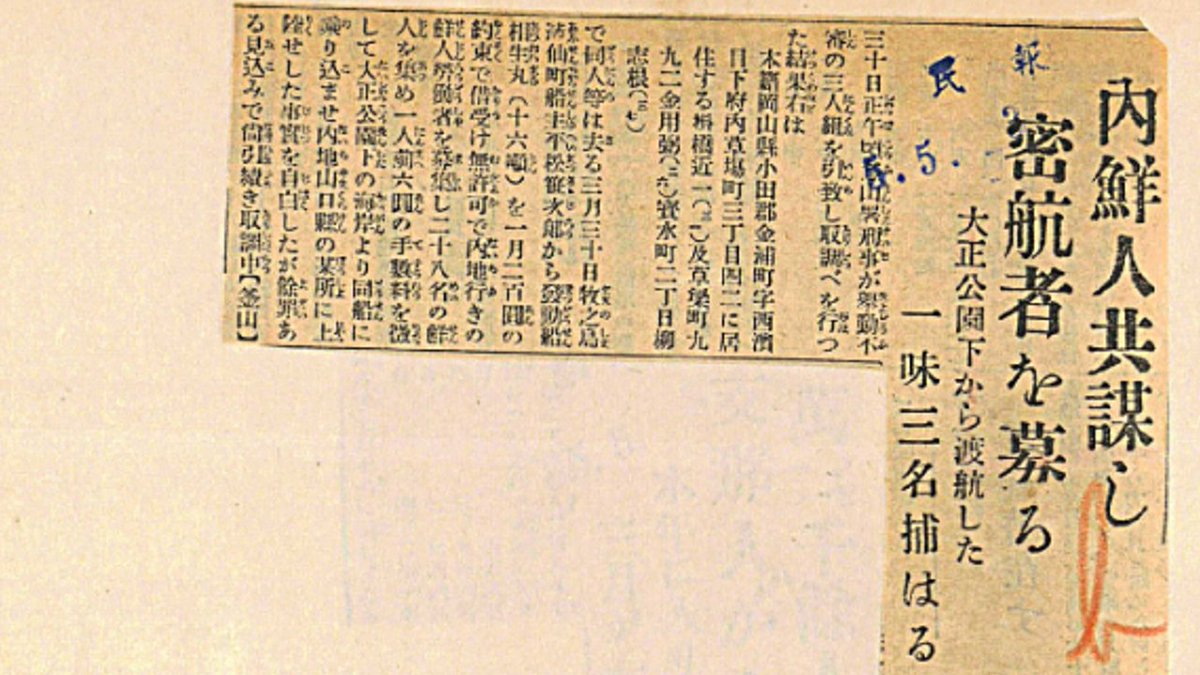 内鮮人共謀し
密航者を募る
大正公園下から渡航した
一味三名捕はる
民報
5.
三十日正午頃 山署刑事が挙動不
審の三人組を引致し取調べを行つ
た結果右は
本籍岡山縣小田郡金浦町字西濱
目下府内草場町三丁目四二に居
住する 橋近一 及草梁町九
九二金用弼 寳水町二丁目柳
志根
で同人等は去る三月三十日牧之島
仙町船主平松 次郎から發動船
相生丸(十六噸)を一月二百圓の
約束で借受け無許可で内地行きの
鮮人勞働者を募集し二十八名の鮮
人を集め一人前六圓の手數料を徴
して大正公園下の海岸より同船に
乗り込ませ内地山口縣の某所に上
陸せした事實を自白したが餘罪あ
る見込みで尚引續き取調中【釜山】